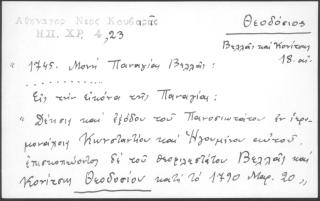 Ἀθηναγόρ. Νέος Κουβαρᾶς
ΗΠ. ΧΡ. 4, 23
Θεοδόσιος
Βελλᾶς καὶ Κονίτσης
18. αἰ.
" 1745. Μονὴ Παναγίας Βελλᾶς :
. . . . . . . . . . . .
Εἰς τὴν εἰκόνα τῆς Παναγίας :
" Δέησις καὶ ἐξόδου τοῦ Πανοσιωτάτου ἐν ἱερο-
μονάχοις Κωνσταντίου καὶ Ἡγουμένου αὐτοῦ,
ἐπισκοπεύοντος δὲ τοῦ θεοφιλεστάτου Βελλᾶς καὶ
Κονίτσης Θεοδοσίου κατὰ τὸ 1790 Μαρ. 20 "